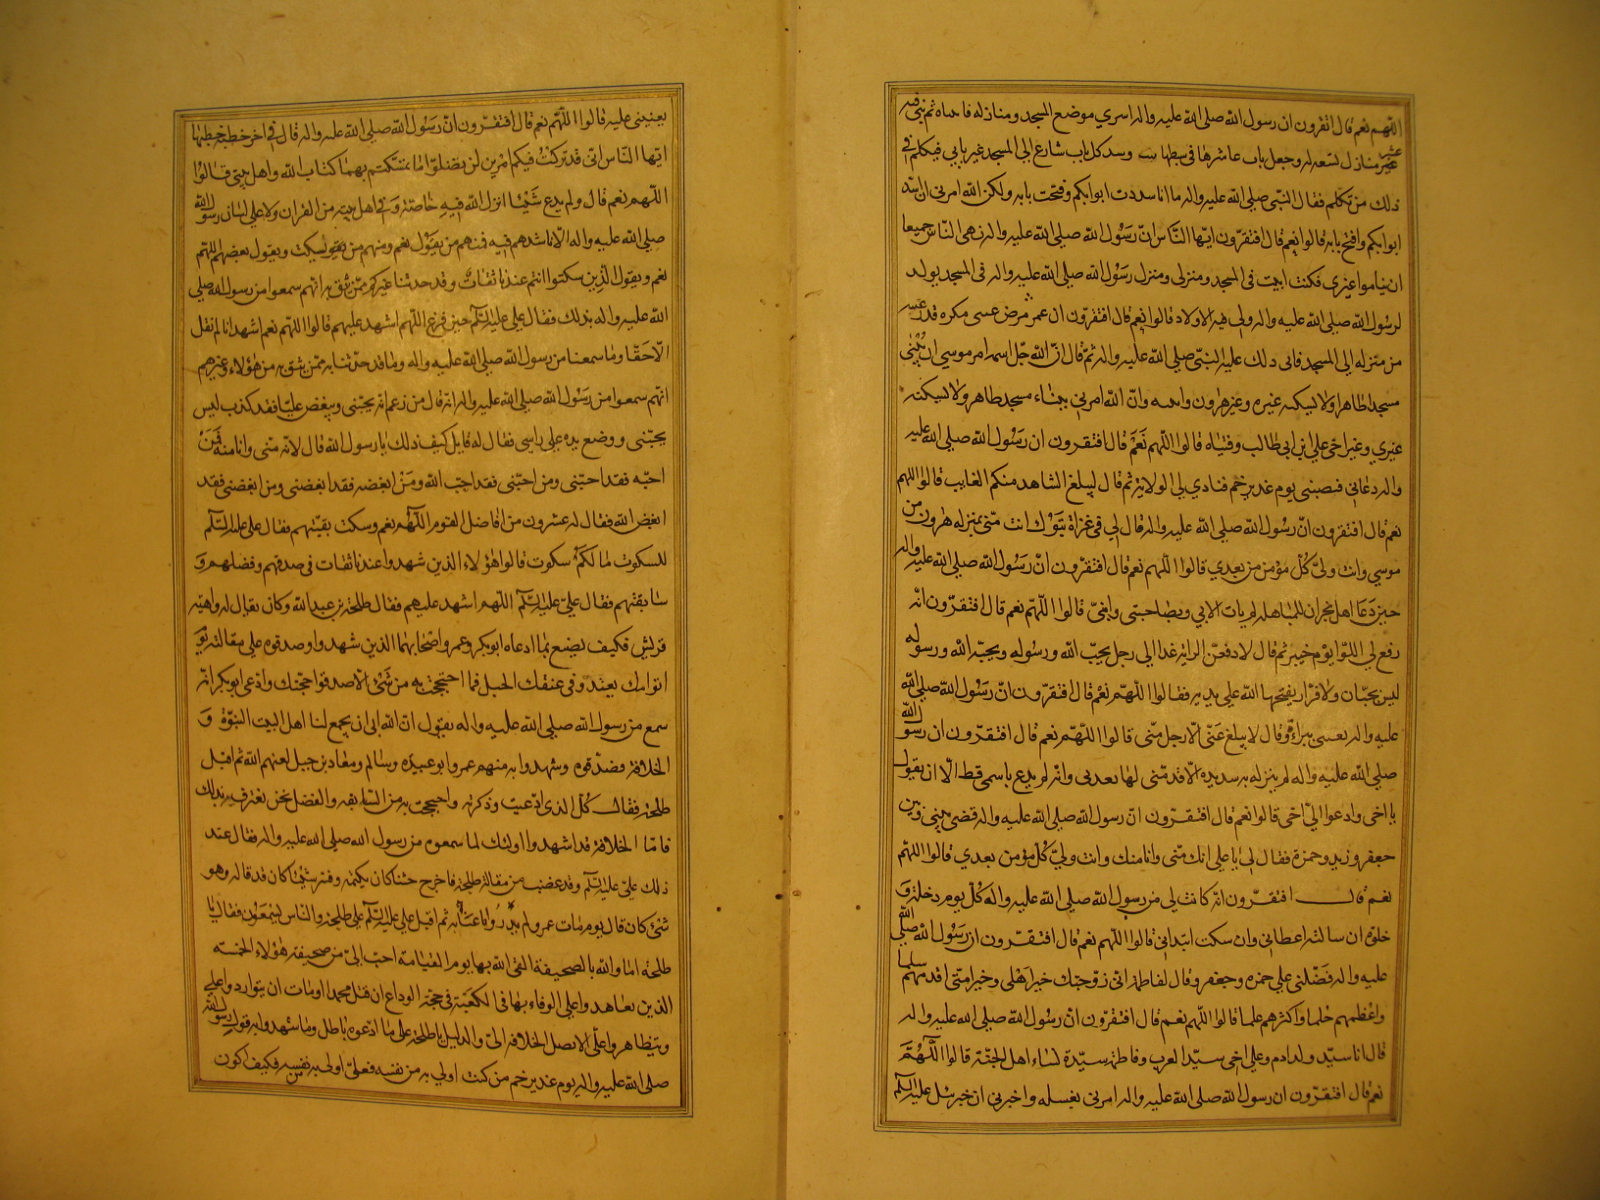 اللهم نعم قال اتقرون ان رسول الله صلى الله عليه واله اسرى موضع المسجد ومنازله فابتناه ثم بنى فيه
عشر منازل تسعه له وجعل باب عاشرها فى وسطها وسد كل باب شارع الى المسجد غير بابى فتكلم فى
ذلك من تكلم فقال النبى صلى الله عليه واله ما انا سددت ابوابكم وفتحت بابه ولكن الله امرنى ان اسد
ابوابكم وافتح بابه قالوا نعم قال افتقرون ايها الناس ان رسول الله صلى الله عليه واله نهى الناس جميعا
ان يناموا غيرى فكنت ابيت فى المسجد ومنزلى ومنزل رسول الله صلى الله عليه واله فى المسجد يولد
لرسول الله صلى الله عليه واله ولى فيه الاولاد قالوا نعم قال افتقرون ان عمر
من منزله الى المسجد فابى ذلك عليه النبى صلى الله عليه واله ثم قال ان الله جل اسمه امر موسى ان يبنى
مسجدا طاهرا ولا يسكنه غيره وغير هرون وابنيه وان الله امرنى ببناء مسجد طاهر ولا يسكنه
غيرى وغير اخى على ابن ابى طالب وفتياه قالوا اللهم نعم قال افتقرون ان رسول الله صلى الله عليه
واله دعانى فنصبنى يوم غدير خم فنادى لى الولاية ثم قال ليبلغ الشاهد منكم الغايب قالوا اللهم
نعم قال افتقرون ان رسول الله صلى الله عليه واله قال لى فى غزاة تبوك انت منى بمنزله هرون من
موسى وانت ولى كل مؤمن من بعدى قالوا اللهم نعم قال افتقرون ان رسول الله صلى الله عليه واله
حين دعا اهل نجران للمباهله لم يات الا بى وبصاحبتى وابنى قالوا اللهم نعم قال افتقرون انه
رفع لى اللوا يوم خيبر ثم قال لادفعن الرايه غدا الى رجل يحب الله ورسوله ويحبه الله ورسوله
ليس بجبان ولا فرار يفتحها الله على يديه فقالوا اللهم نعم قال افتقرون ان رسول الله صلى الله
عليه واله بعثنى ببراءة وقال لا يبلغ عنى الا رجل منى قالوا اللهم نعم قال افتقرون ان رسول الله
صلى الله عليه واله لم ينزله به شديده الا قدمنى لها وانه لم يدع باسمى قط الا ان يقول
يا اخى وادعوا الى اخى قالوا نعم قال افتقرون ان رسول الله صلى الله عليه واله قضى بينى وبين
جعفر وزيد وحمزة فقال لى يا على انك منى وانا منك وانت ولى كل مؤمن بعدى قالوا اللهم
نعم قال افتقرون انه كانت لى من رسول الله صلى الله عليه واله كل يوم دخلة و
خلوه ان سالته اعطانى وان سكت ابتدانى قالوا اللهم نعم قال افتقرون ان رسول الله صلى الله
عليه واله فضلنى على حمزه وجعفر وقال لفاطمه انى زوجتك خير اهلى وخير امتى اقدمهم سلما
واعظمهم حلما واكثرهم علما قالوا اللهم نعم قال افتقرون ان رسول الله صلى الله عليه واله
قال انا سيد ولد ادم وعلى اخى سيد العرب وفاطمة سيدة نساء اهل الجنة قالوا اللهم
نعم قال افتقرون ان رسول الله صلى الله عليه واله امرنى بغسله واخبرنى ان جبرئيل عليه السلم
يعيننى عليه قالوا اللهم نعم قال افتقرون ان رسول الله صلى الله عليه واله قال فى اخر خطبة خطبها
ايها الناس انى قد تركت فيكم امرين لن تضلوا ما تمسكتم بهما كتاب الله واهل بيتى قالوا
اللهم نعم قال ولم يدع شيئا انزل الله فيه خاصة وفى اهل بيته من القران ولا على لسان رسول الله
صلى الله عليه واله الا ناشدهم فيه فمنهم من يقول نعم ومنهم من يسكت ويقول بعضهم اللهم
نعم ويقول الذين سكتوا انتم عندنا ثقات وقد حدثنا غيركم ممن نثق به انهم سمعوا من رسول الله صلى
الله عليه واله بذلك فقال على عليه السلم حين فرغ اللهم اشهد عليهم قالوا اللهم نعم اشهد انا لم نقل
الا حقا وما سمعنا من رسول الله صلى الله عليه واله وما قد حدثنا به ممن نثق به من هؤلاء وغيرهم
انهم سمعوا من رسول الله صلى الله عليه واله انه قال من زعم انه يحبنى ويبغض عليا فقد كذب ليس
يحبنى ووضع يده على راسى فقال له قايل كيف ذلك يا رسول الله قال لانه منى وانا منه فمن
احبه فقد احبنى ومن احبنى فقد احب الله ومن ابغضه فقد ابغضنى ومن ابغضنى فقد
ابغض الله فقال له عشرون من افاضل القوم اللهم نعم وسكت بقيتهم فقال على عليه السلم
للسكوت ما لكم سكوت قالوا هؤلاء الذين شهدوا عندنا ثقات فى صدقهم وفضلهم و
سابقتهم فقال على عليه السلم اللهم اشهد عليهم فقال طلحة بن عبد الله وكان يقال له داهية
قريش فكيف نصنع بما ادعاه ابو بكر وعمر واصحابهما الذين شهدوا وصدقوه على مقالته يوم
اتوا بك بعتد وفى عنقك الحبل فما احتججت به من شئ الا صدقوا حجتك وادعى ابو بكر انه
سمع من رسول الله صلى الله عليه واله يقول ان الله ابى ان يجمع لنا اهل البيت النبوة و
الخلافة فصدقوه وشهدوا به منهم عمر وابو عبيده وسالم ومعاذ بن جبل لعنهم الله ثم اقبل
طلحة فقال كل الذى ادعيت وذكرته واحتججت به من السابقه والفضل نحن نعترف به لك
فاما الخلافة فقد اشهدوا اولئك لما سمعوه من رسول الله صلى الله عليه واله فقال عند
ذلك على عليه السلم وقد غضب من مقالة طلحة فاخرج شيئا كان يكتمه وفسر شيئا كان قد قاله وهو
شئ كان قال يوم مات عمر ولم يدروا ما عنا به ثم اقبل على عليه السلم على طلحة والناس يسمعون فقال يا
طلحة اما والله بالصحيفة القى الله بها يوم القيامة احب الى من صحيفة هؤلاء الخمسه
الذين تعاهدوا على الوفاء بها فى الكعبة فى حجة الوداع ان قتل محمد او مات ان يتوازروا على
ويتظاهروا على الا تصل الخلافة الى والدليل يا طلحة على ما ادعوه باطل وما شهدوا به قول رسول الله
صلى الله عليه واله يوم غدير خم من كنت اولى به من نفسه فعلى اولى به من نفسه فكيف اكون